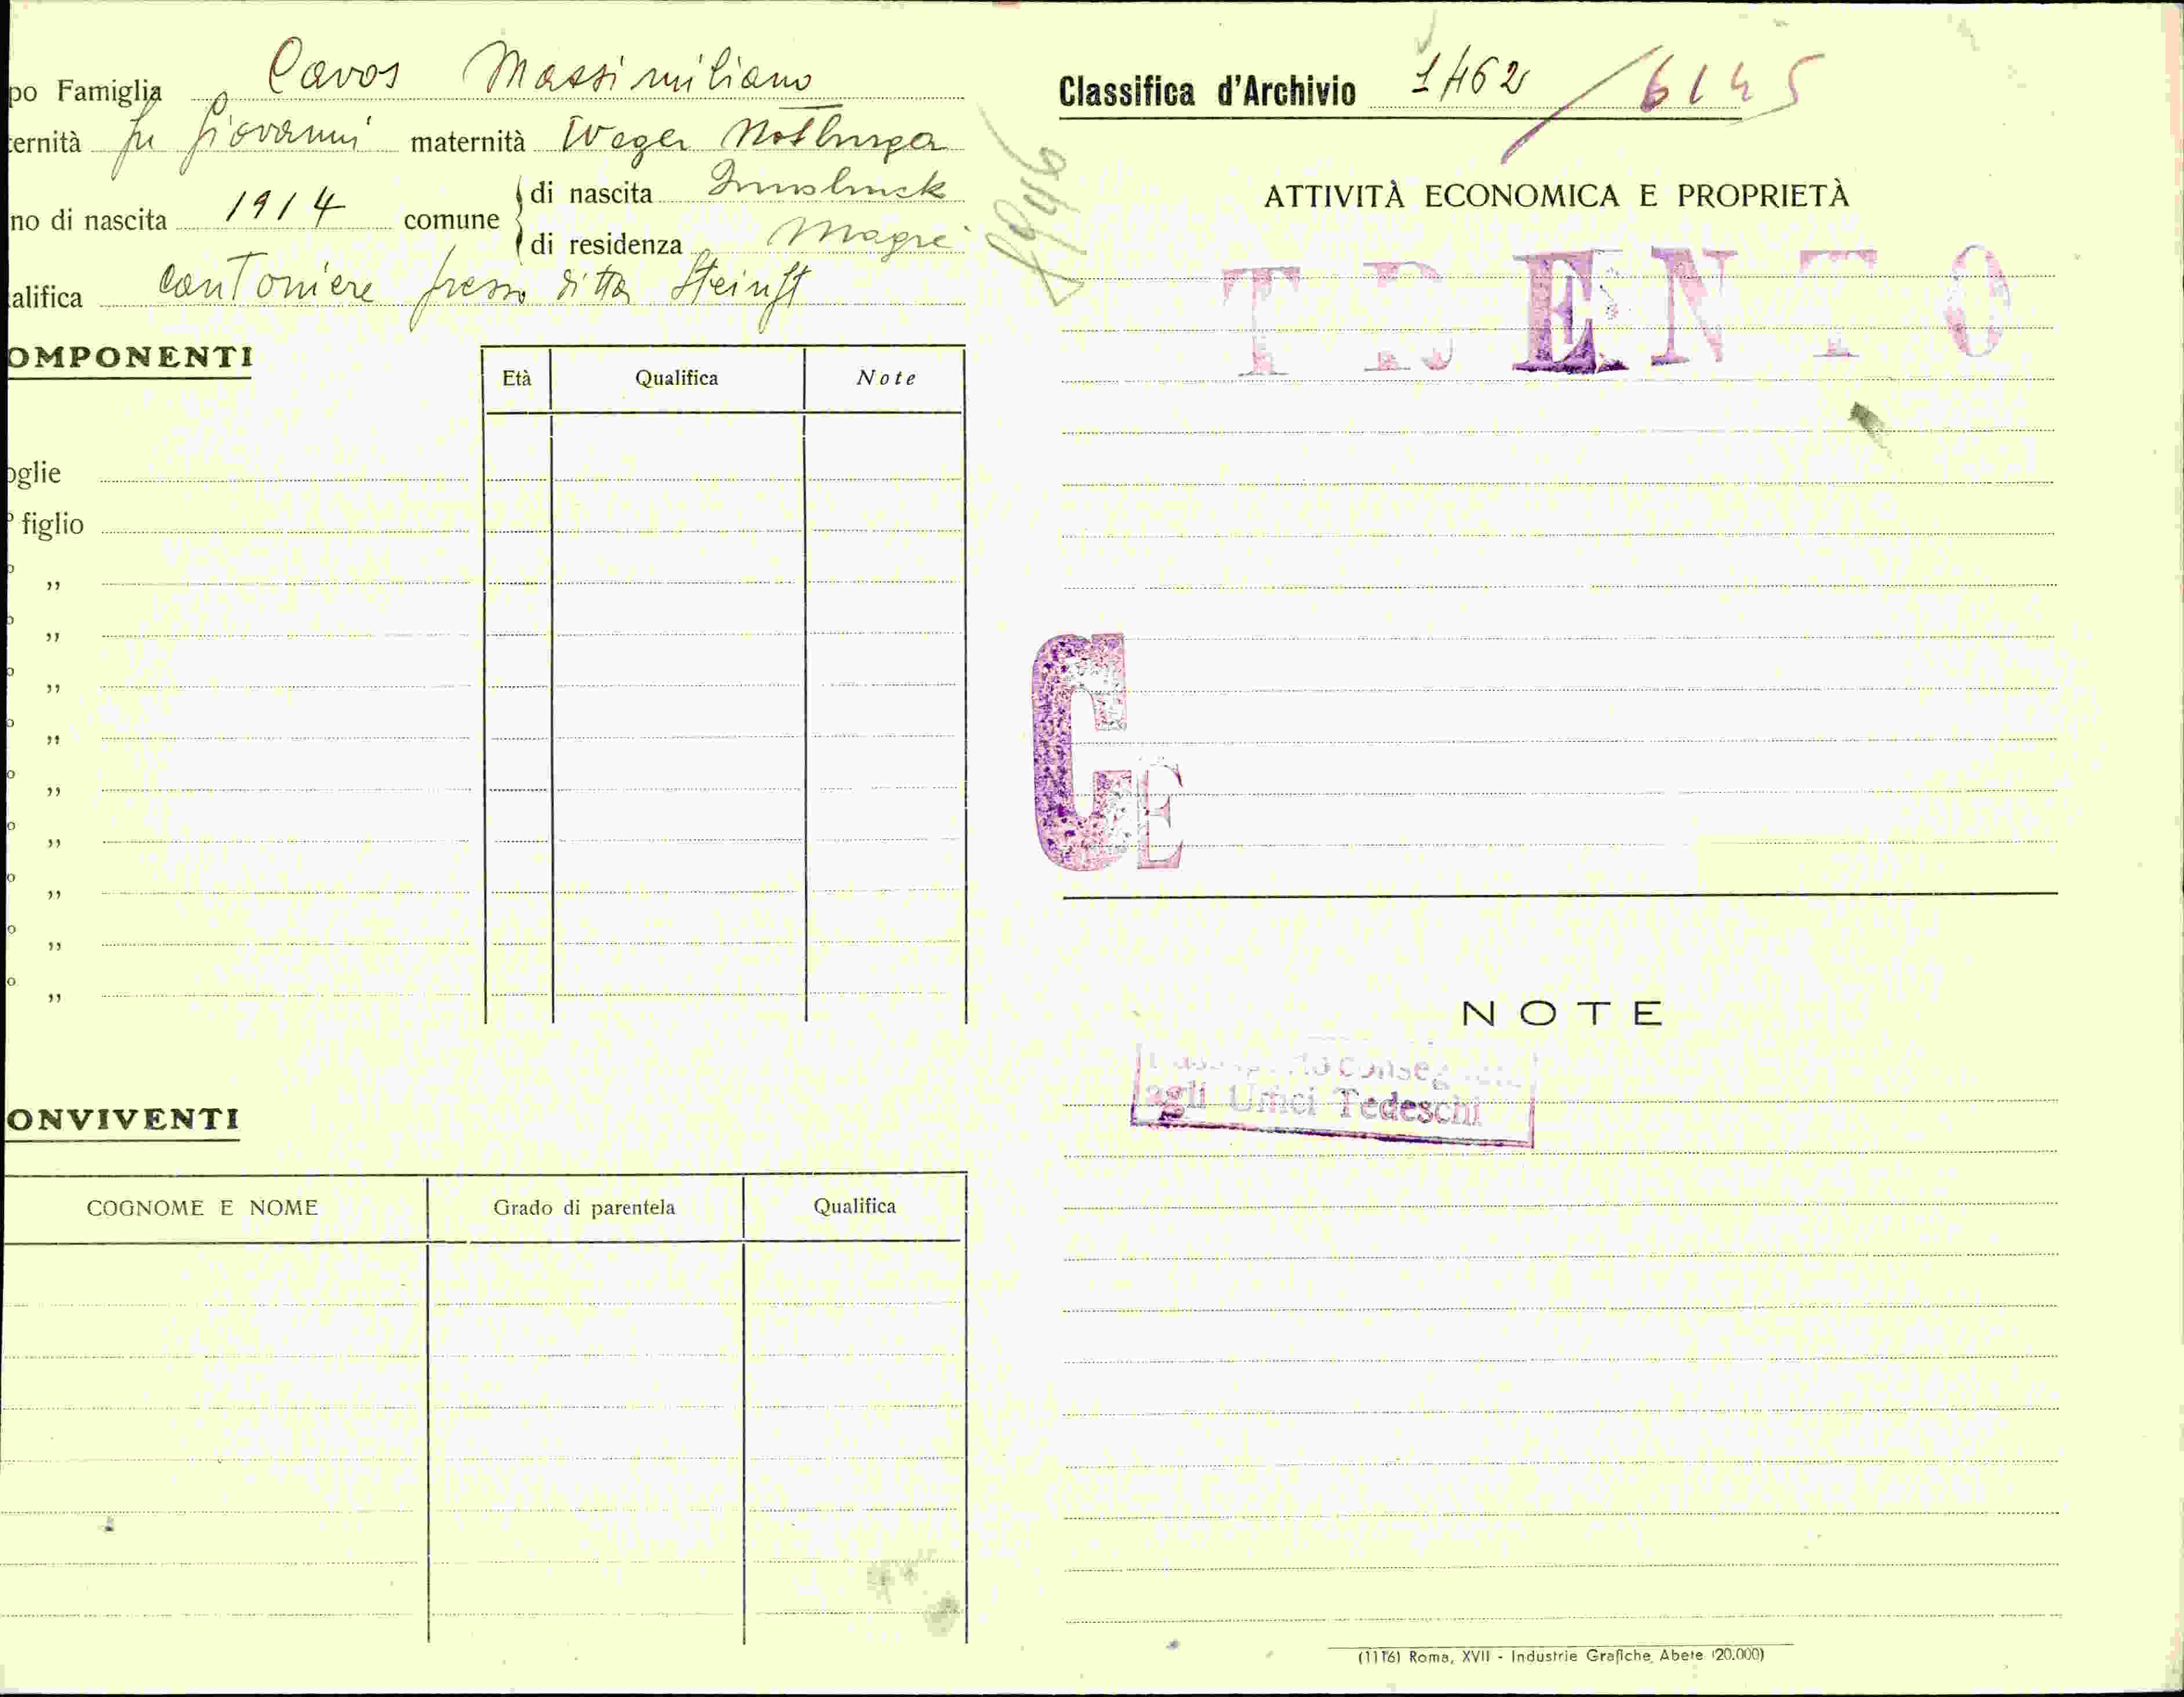 po Famiglia Cavos Massimiliano
ernità fu Giovanni maternità Weger Notburga
no di nascita 1914 comune di nascita Innsbruck
di residenza Magrè
alifica cantoniere presso ditta
OMPONENTI
Età Qualifica Note
oglie
o figlio
o ,,
o ,,
o ,,
o ,,
o ,,
o ,,
o ,,
o ,,
o ,,
ONVIVENTI
COGNOME E NOME Grado di parentela Qualifica
Classifica d'Archivio 1462 / 6145
ATTIVITÀ ECONOMICA E PROPRIETÀ
TRENTO
CE
NOTE
agli Uffici Tedeschi
(1116) Roma, XVII - Industrie Grafiche Abete (20.000)